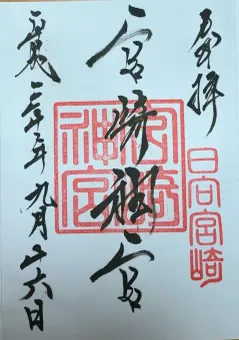 奉拝
日向宮崎
宮崎神宮
宮崎神宮
平成二十三年九月廿六日